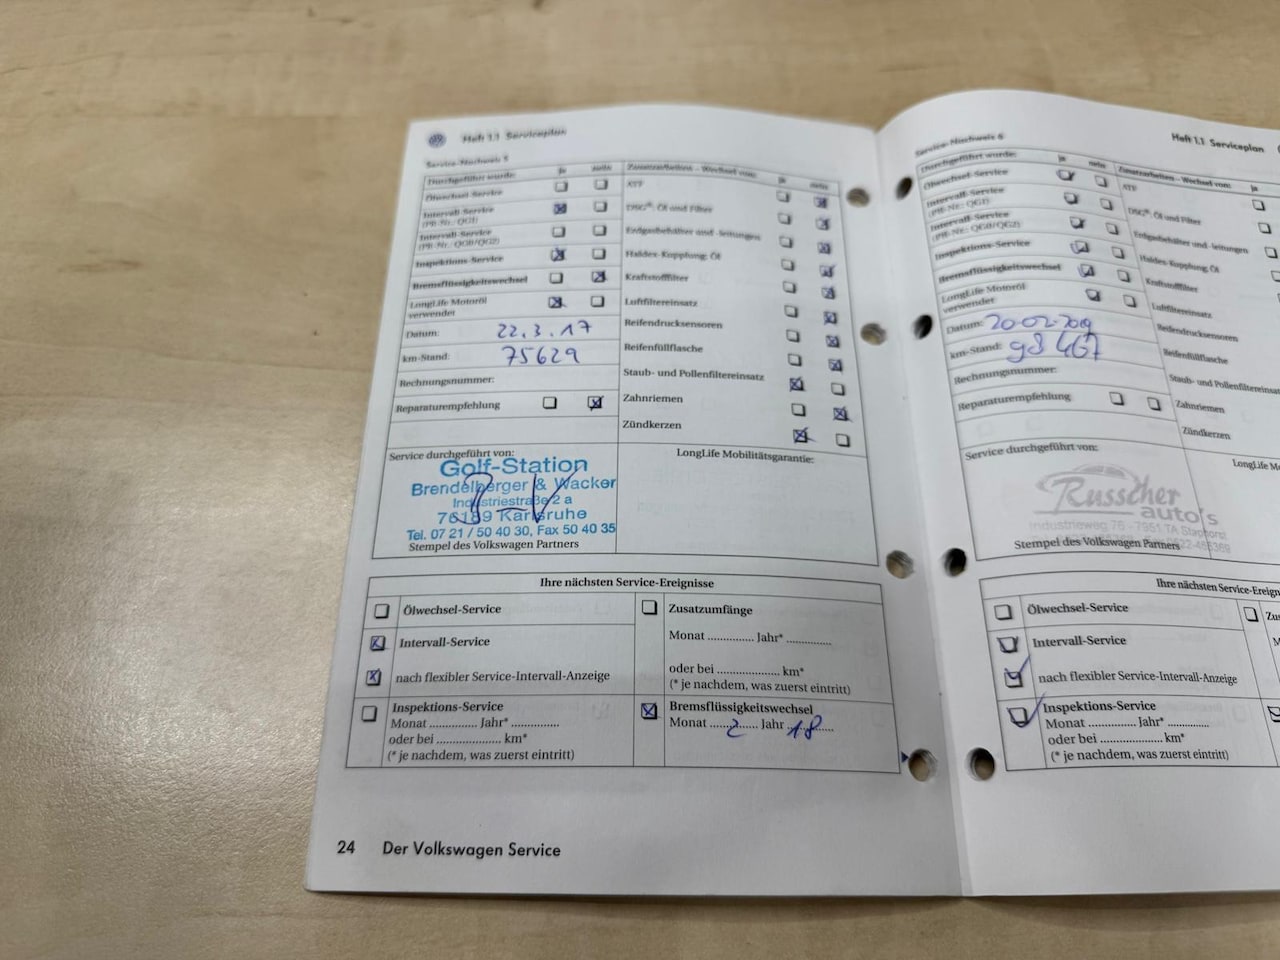 Heft 1.1 Serviceplan
Service-Nachweis 5
Durchgeführt wurde: ja nein
Ölwechsel-Service
Intervall-Service
(PR-Nr.: QG1)
Intervall-Service
(PR-Nr.: QG0/QG2)
Inspektions-Service
Bremsflüssigkeitswechsel
LongLife Motoröl
verwendet
Datum: 22.3.17
km-Stand: 75629
Rechnungsnummer:
Reparaturempfehlung
Zusatzarbeiten - Wechsel von: ja nein
ATF
DSG®: Öl und Filter
Erdgasbehälter und -leitungen
Haldex-Kupplung: Öl
Kraftstofffilter
Luftfiltereinsatz
Reifendrucksensoren
Reifenfüllflasche
Staub- und Pollenfiltereinsatz
Zahnriemen
Zündkerzen
Service durchgeführt von:
Golf-Station
Brendelberger & Wacker
Industriestraße 2 a
76189 Karlsruhe
Tel. 07 21 / 50 40 30, Fax 50 40 35
Stempel des Volkswagen Partners
LongLife Mobilitätsgarantie:
Ihre nächsten Service-Ereignisse
Ölwechsel-Service
Intervall-Service
nach flexibler Service-Intervall-Anzeige
Inspektions-Service
Monat .............. Jahr* ..............
oder bei .................... km*
(* je nachdem, was zuerst eintritt)
Zusatzumfänge
Monat .............. Jahr* ..............
oder bei .................... km*
(* je nachdem, was zuerst eintritt)
Bremsflüssigkeitswechsel
Monat ....2.... Jahr ..18......
24 Der Volkswagen Service
Heft 1.1 Serviceplan
Service-Nachweis 6
Durchgeführt wurde: ja nein
Ölwechsel-Service
Intervall-Service
(PR-Nr.: QG1)
Intervall-Service
(PR-Nr.: QG0/QG2)
Inspektions-Service
Bremsflüssigkeitswechsel
LongLife Motoröl
verwendet
Datum: 20-02-2019
km-Stand: 98467
Rechnungsnummer:
Reparaturempfehlung
Zusatzarbeiten - Wechsel von: ja
ATF
DSG®: Öl und Filter
Erdgasbehälter und -leitungen
Haldex-Kupplung: Öl
Kraftstofffilter
Luftfiltereinsatz
Reifendrucksensoren
Reifenfüllflasche
Staub- und Pollenfiltereinsa
Zahnriemen
Zündkerzen
Service durchgeführt von:
Russcher
auto's
Industrieweg 76 - 7951 TA Staphorst
Stempel des Volkswagen Partners
LongLife M
Ihre nächsten Service-Ereign
Ölwechsel-Service
Intervall-Service
nach flexibler Service-Intervall-Anzeige
Inspektions-Service
Monat .............. Jahr* ..............
oder bei .................... km*
(* je nachdem, was zuerst eintritt)
Zu